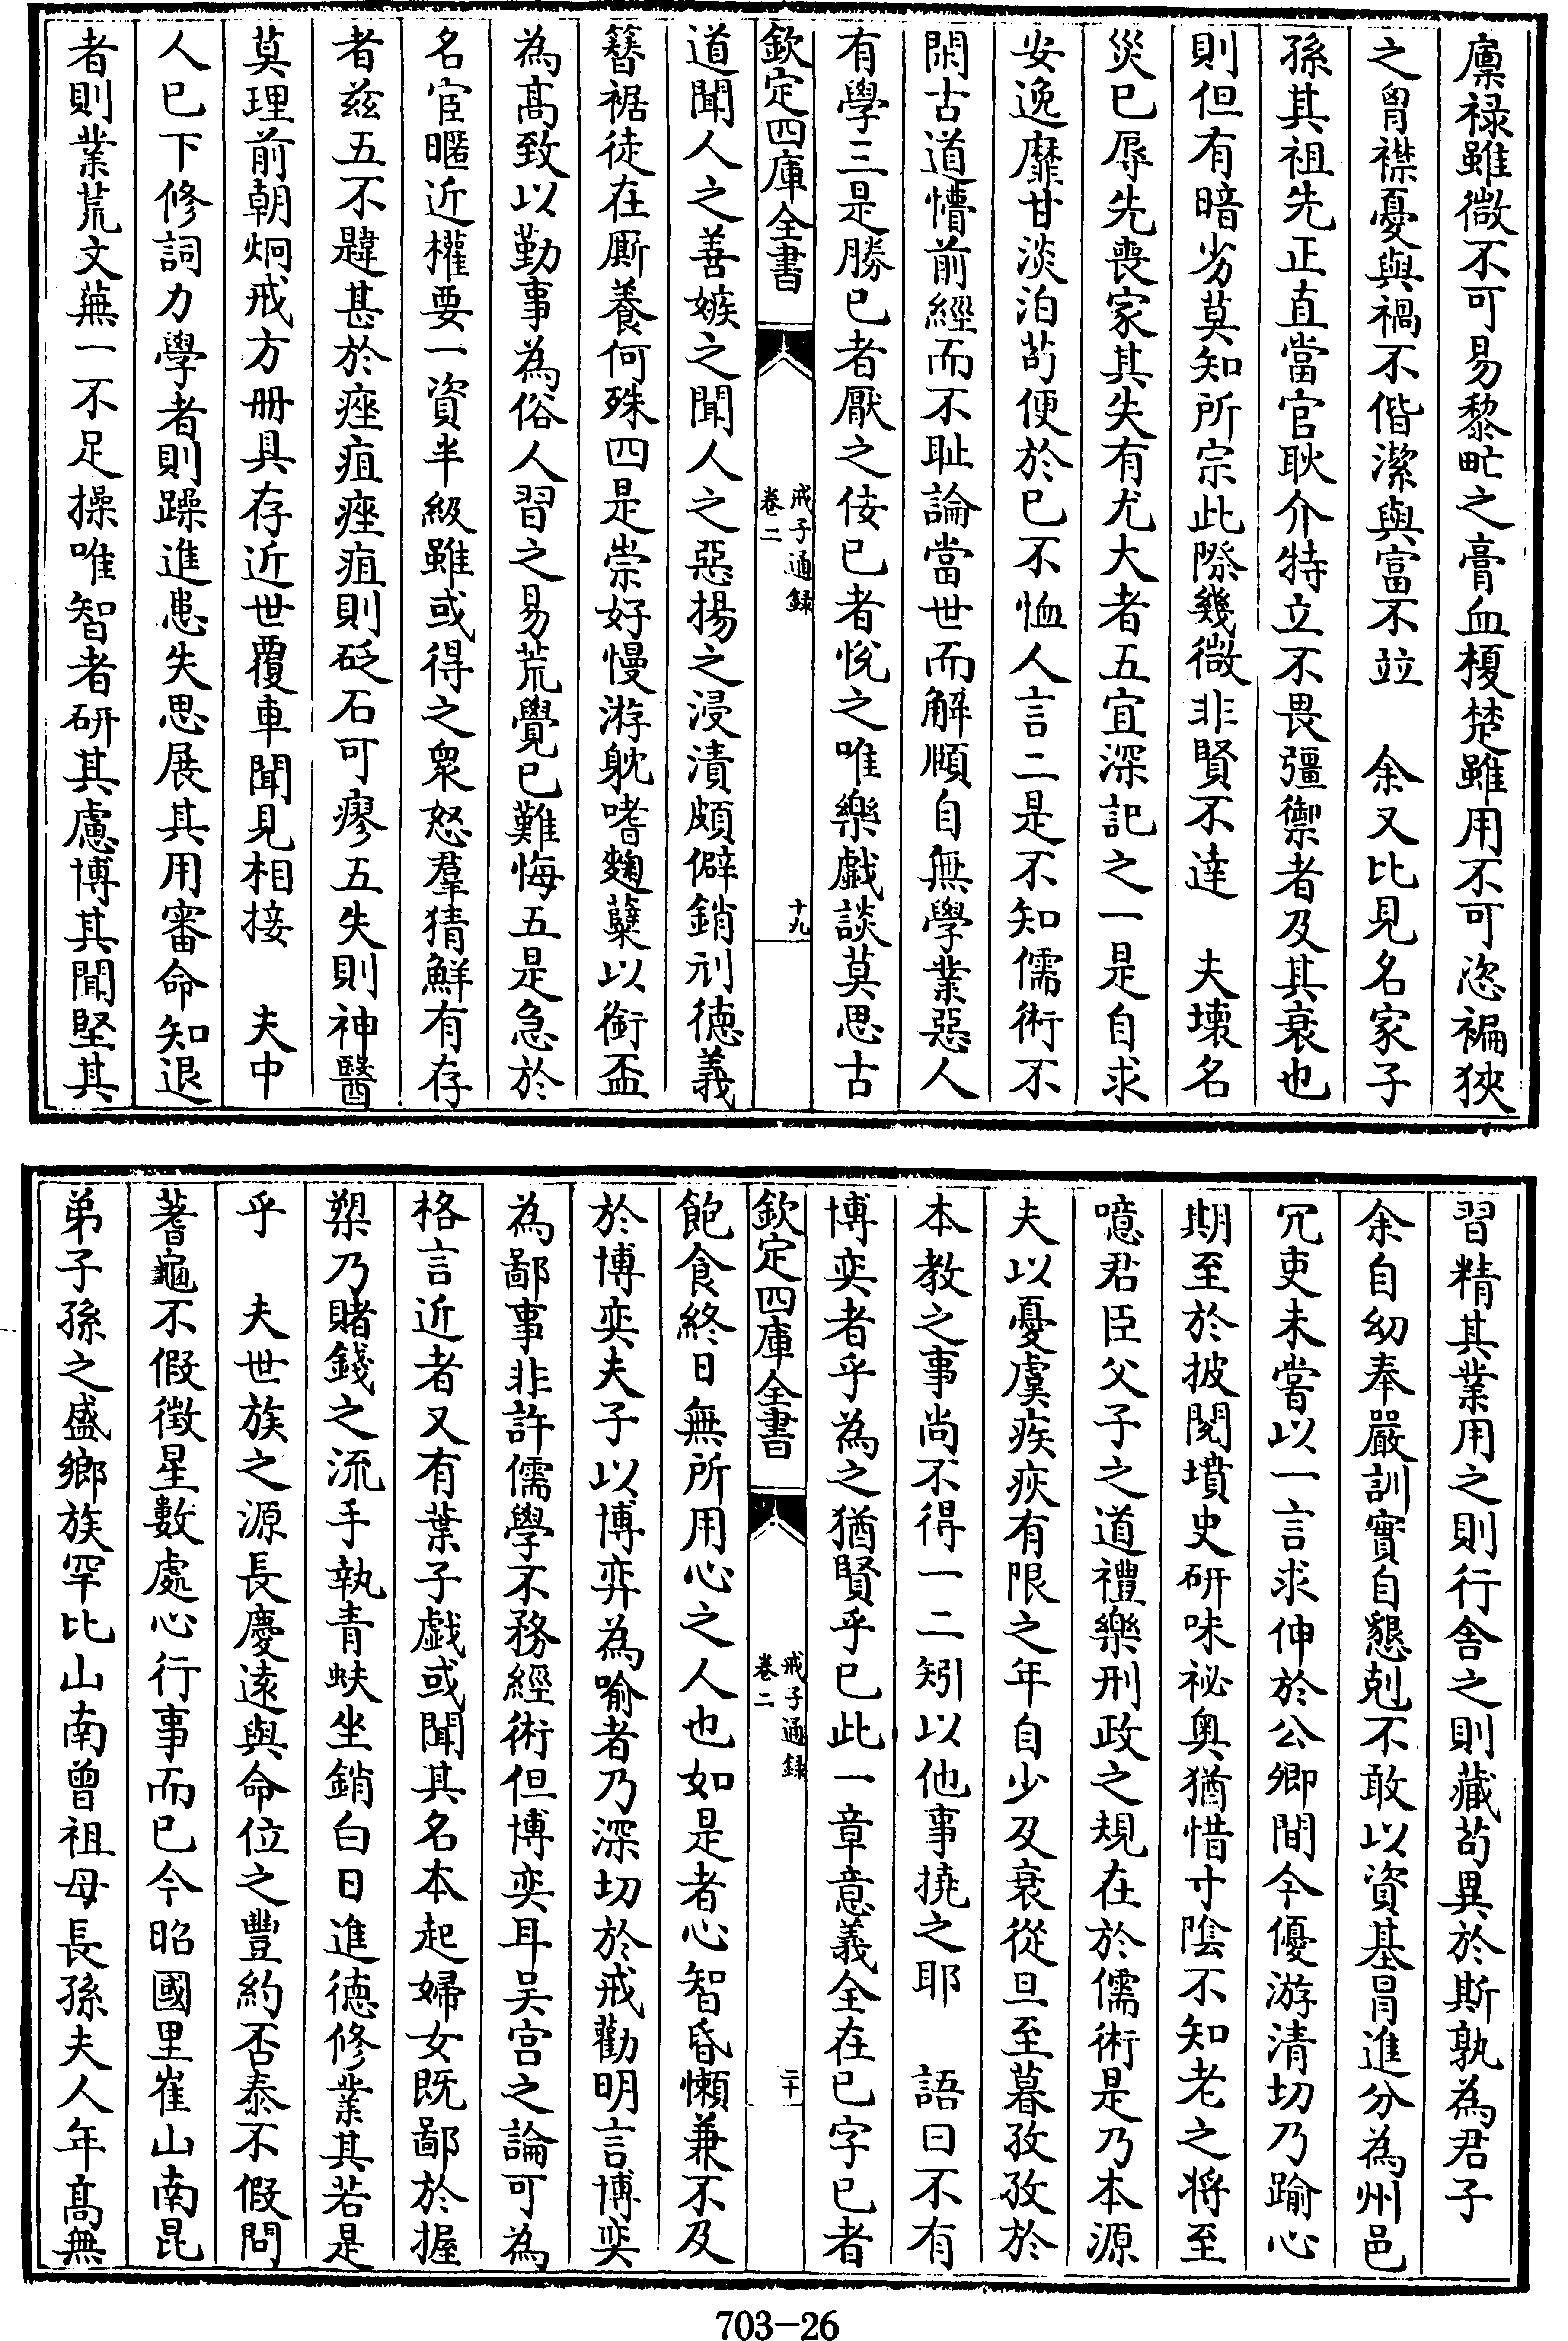 廩禄雖微不可易黎甿之膏血榎楚雖用不可恣褊狹
之胷襟憂與禍不偕潔與富不竝　余又比見名家子
孫其祖先正直當官耿介特立不畏彊禦者及其衰也
則但有暗劣莫知所宗此際幾微非賢不達　夫壞名
災已辱先喪家其失有尤大者五宜深記之一是自求
安逸靡甘淡泊茍便於已不恤人言二是不知儒術不
閑古道懵前經而不耻論當世而解頤自無學業惡人
有學三是勝已者厭之佞已者悅之唯樂戱談莫思古
欽定四庫全書
戒子通録
卷二
十九
道聞人之善嫉之聞人之惡揚之浸漬頗僻銷刓徳義
簪裾徒在厮養何殊四是崇好慢游躭嗜麴糵以銜盃
為髙致以勤事為俗人習之易荒覺已難悔五是急於
名宦暱近權要一資半級雖或得之衆怒羣猜鮮有存
者兹五不韙甚於痤疽痤疽則砭石可瘳五失則神醫
莫理前朝炯戒方册具存近世覆車聞見相接　夫中
人已下修詞力學者則躁進患失思展其用審命知退
者則業荒文蕪一不足操唯智者研其慮博其聞堅其
習精其業用之則行舍之則藏茍異於斯孰為君子
余自幼奉嚴訓實自懇剋不敢以資基冒進分為州邑
冗吏未嘗以一言求伸於公卿間今優游清切乃踰心
期至於披閱墳史研味祕奥猶惜寸隂不知老之將至
噫君臣父子之道禮樂刑政之規在於儒術是乃本源
夫以憂虞疾疢有限之年自少及衰從旦至暮孜孜於
本教之事尚不得一二矧以他事撓之耶　語曰不有
博奕者乎為之猶賢乎已此一章意義全在已字已者
欽定四庫全書
戒子通録
卷二
二十
飽食終日無所用心之人也如是者心智昏懶兼不及
於博奕夫子以博弈為喻者乃深切於戒勸明言博奕
為鄙事非許儒學不務經術但博奕耳吴宫之論可為
格言近者又有葉子戱或聞其名本起婦女既鄙於握
槊乃賭錢之流手執青蚨坐銷白日進徳修業其若是
乎　夫世族之源長慶遠與命位之豐約否泰不假問
蓍龜不假徴星數處心行事而已今昭國里崔山南昆
弟子孫之盛鄉族罕比山南曾祖母長孫夫人年髙無
703-26